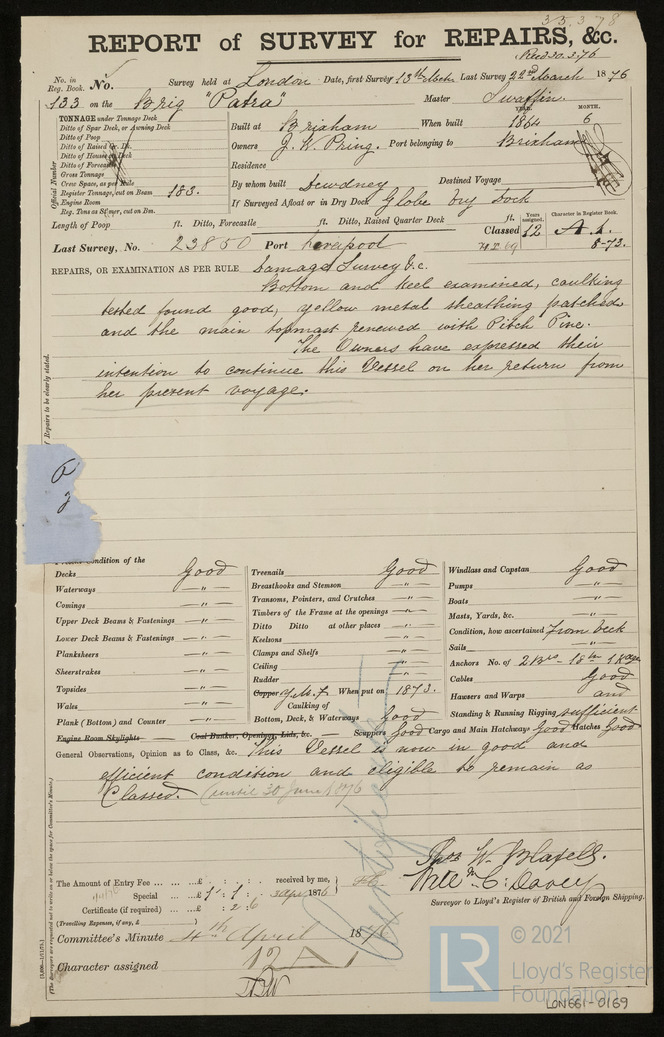 35378
REPORT of SURVEY for REPAIRS, &c.
Rec'd 30.3.76
No. in Reg. Book. No. Survey held at London Date, first Survey 13th Mch Last Survey 22nd March 1876
133 on the Brig "Patra" Master Swaffin
TONNAGE under Tonnage Deck
Ditto of Spar Deck, or Awning Deck
Ditto of Poop
Ditto of Raised Qr. Dk.
Ditto of House on Deck
Ditto of Forecastle
Gross Tonnage
Crew Space, as per Rule
Register Tonnage, cut on Beam 183.
Engine Room
Reg. Tons as Stmer, cut on Bm.
Official Number
YEAR. MONTH.
Built at Brixham When built 1864 6
Owners J. W. Pring. Port belonging to Brixham
Residence
By whom built Dewdney Destined Voyage
If Surveyed Afloat or in Dry Dock Globe Dry Dock
Length of Poop ft. Ditto, Forecastle ft. Ditto, Raised Quarter Deck ft.
Classed Years assigned. 12 Character in Register Book. A.1.
8-73.
Last Survey, No. 23850 Port Liverpool
REPAIRS, OR EXAMINATION AS PER RULE Damage Survey &c.
Bottom and keel examined, caulking
tested found good, yellow metal sheathing patched
and the main topmast renewed with Pitch Pine.
The Owners have expressed their
intention to continue this Vessel on her return from
her present voyage.
Repairs to be clearly stated.
Condition of the
Decks Good
Waterways — " —
Comings — " —
Upper Deck Beams & Fastenings — " —
Lower Deck Beams & Fastenings — " —
Planksheers — " —
Sheerstrakes — " —
Topsides — " —
Wales — " —
Plank (Bottom) and Counter — " —
Engine Room Skylights Coal Bunker, Openings, Lids, &c.
Treenails Good
Breasthooks and Stemson — " —
Transoms, Pointers, and Crutches — " —
Timbers of the Frame at the openings — " —
Ditto Ditto at other places — " —
Keelsons — " —
Clamps and Shelfs — " —
Ceiling — " —
Rudder — " —
Copper Y.M.F When put on 1873.
Caulking of
Bottom, Deck, & Waterways Good
Scuppers Good Cargo and Main Hatchways Good Hatches Good
Windlass and Capstan Good
Pumps — " —
Boats — " —
Masts, Yards, &c. — " —
Condition, how ascertained from deck
Sails — " —
Anchors No. of
Cables Good
Hawsers and Warps and
Standing & Running Rigging sufficient
General Observations, Opinion as to Class, &c. This Vessel is now in good and
efficient condition and eligible to remain as
Classed. (until 30 June 1876
The Amount of Entry Fee £ : : received by me,
Special £ 1 : 1 : 3 Apl 1876
Certificate (if required) : 2 : 6
(Travelling Expenses, if any, £ )
Thos W. Blafell.
Willm C. Davey
Surveyor to Lloyd's Register of British and Foreign Shipping.
Committee's Minute 4th April 1876
Character assigned 12 A 1
(The Surveyors are requested not to write on or below the space for Committee's Minute.)
© 2021
Lloyd's Register
Foundation
LR
LON661-0169